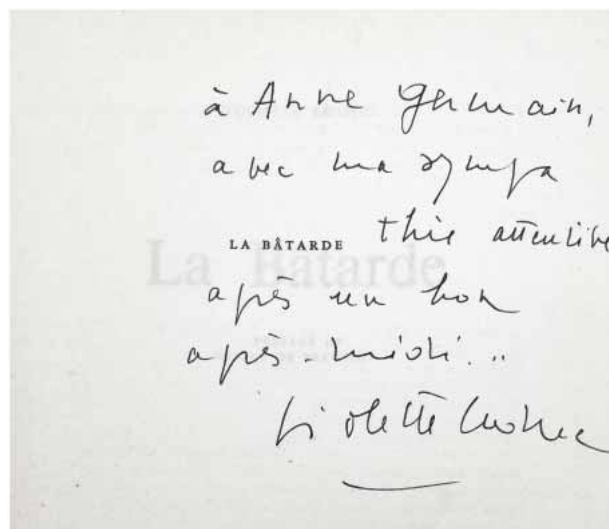 à Anne Germain,
avec ma sympa
LA BÂTARDE thie attentive
La Bâtarde
après un bon
après-midi...
Violette Leduc